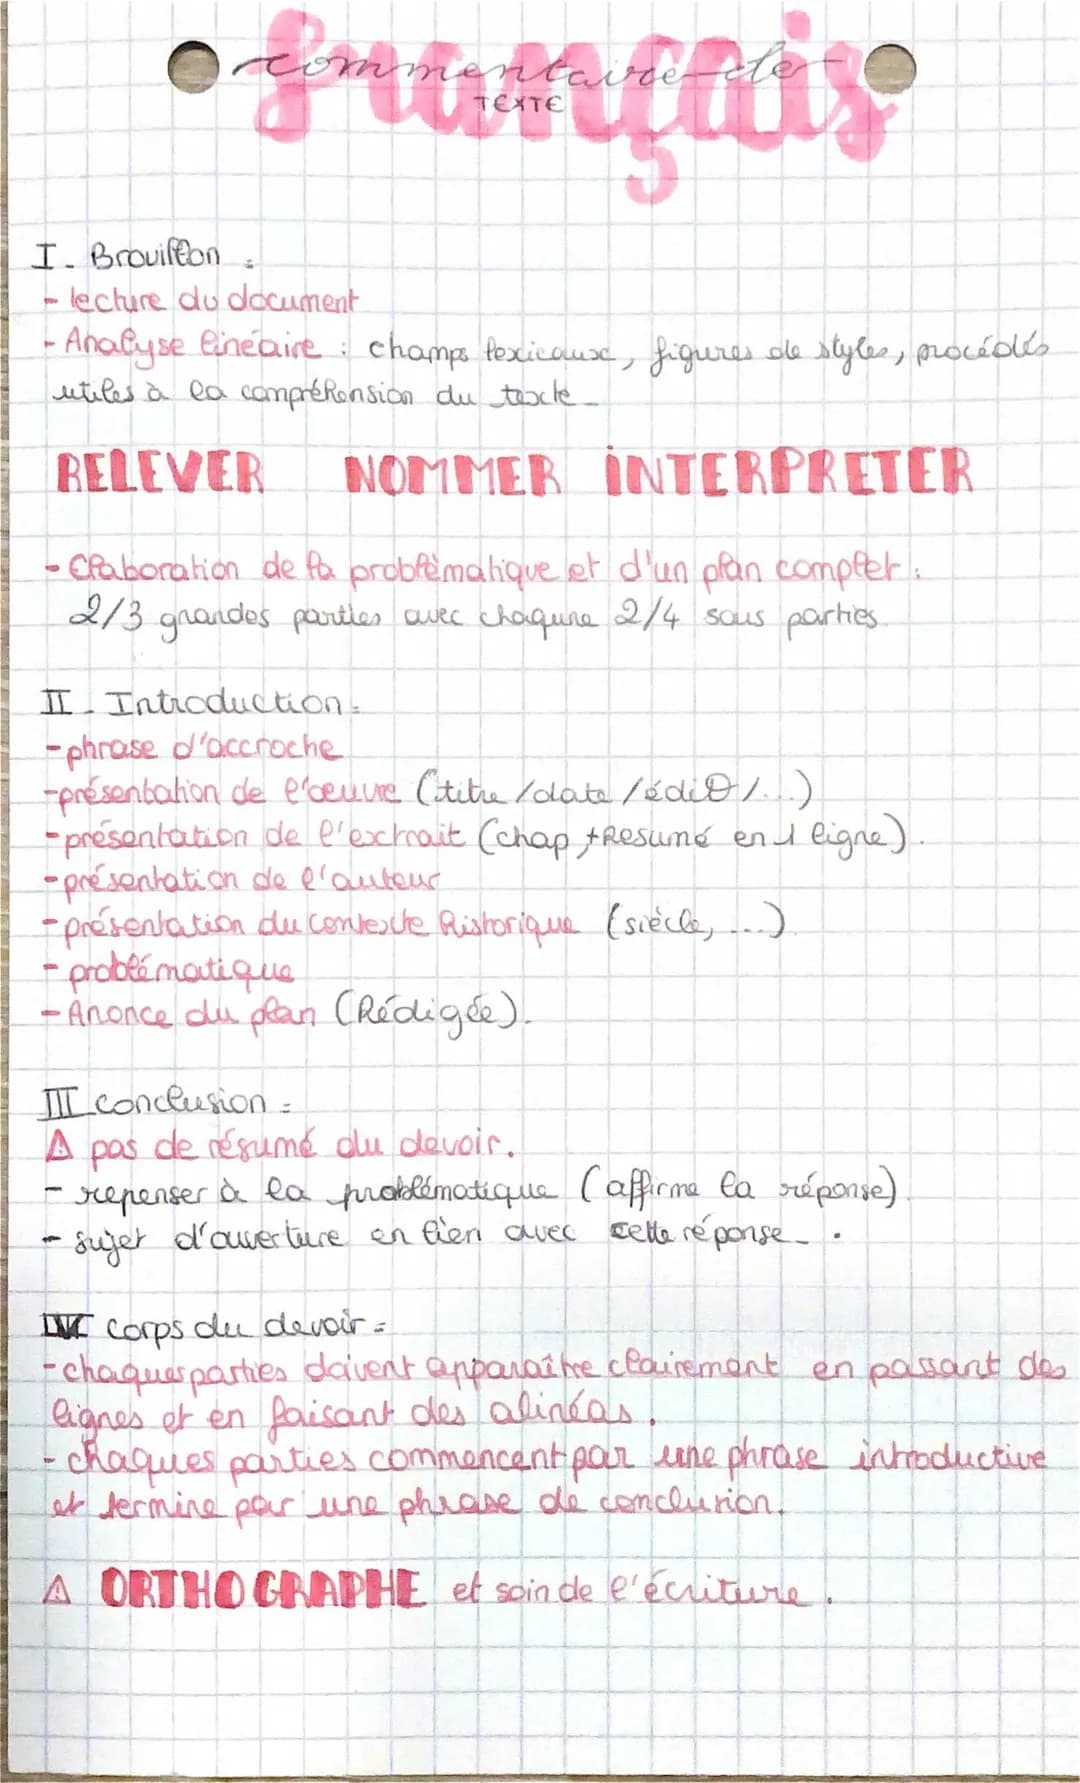 français
commentaire de
TEXTE
I - Brouillon :
- lecture du document
- Analyse linéaire : champs lexicause, figures de styles, procédés
utiles à la compréhension du texte -
RELEVER NOMMER INTERPRETER
- Elaboration de la problèmatique et d'un plan complet :
2/3 grandes parties avec chaqune 2/4 sous parties
II - Introduction :
- phrase d'accroche
- présentation de l'œuvre (titre /date /édi⁰ /...)
- présentation de l'extrait (chap + Resumé en 1 ligne).
- présentation de l'auteur
- présentation du contexte historique (siècle, ...)
- problématique
- Anonce du plan (Rédigée).
III conclusion :
⚠ pas de résumé du devoir.
- repenser à la problématique (affirme la réponse)
- sujet d'ouverture en lien avec cette réponse - .
IV corps du devoir :
- chaques parties doivent apparaître clairement en passant des
lignes et en faisant des alinéas.
- chaques parties commencent par une phrase introductive
et termine par une phrase de conclusion.
⚠ ORTHOGRAPHE et soin de l'écriture.